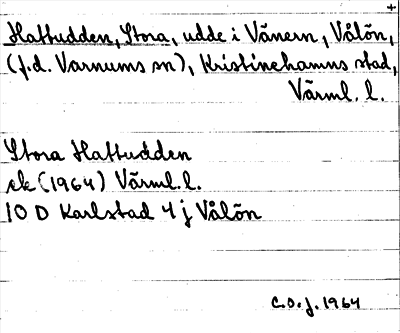 +
Hattudden, Stora, udde i Vänern, Vålön,
(f.d. Varnums sn), Kristinehamns stad,
Värml. l.
Stora Hattudden
ek (1964) Värml. l.
10 D Karlstad 4 j Vålön
C.O.J. 1964